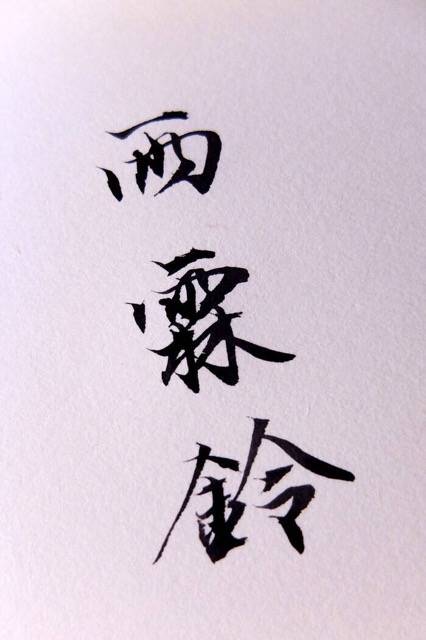 雨霖鈴